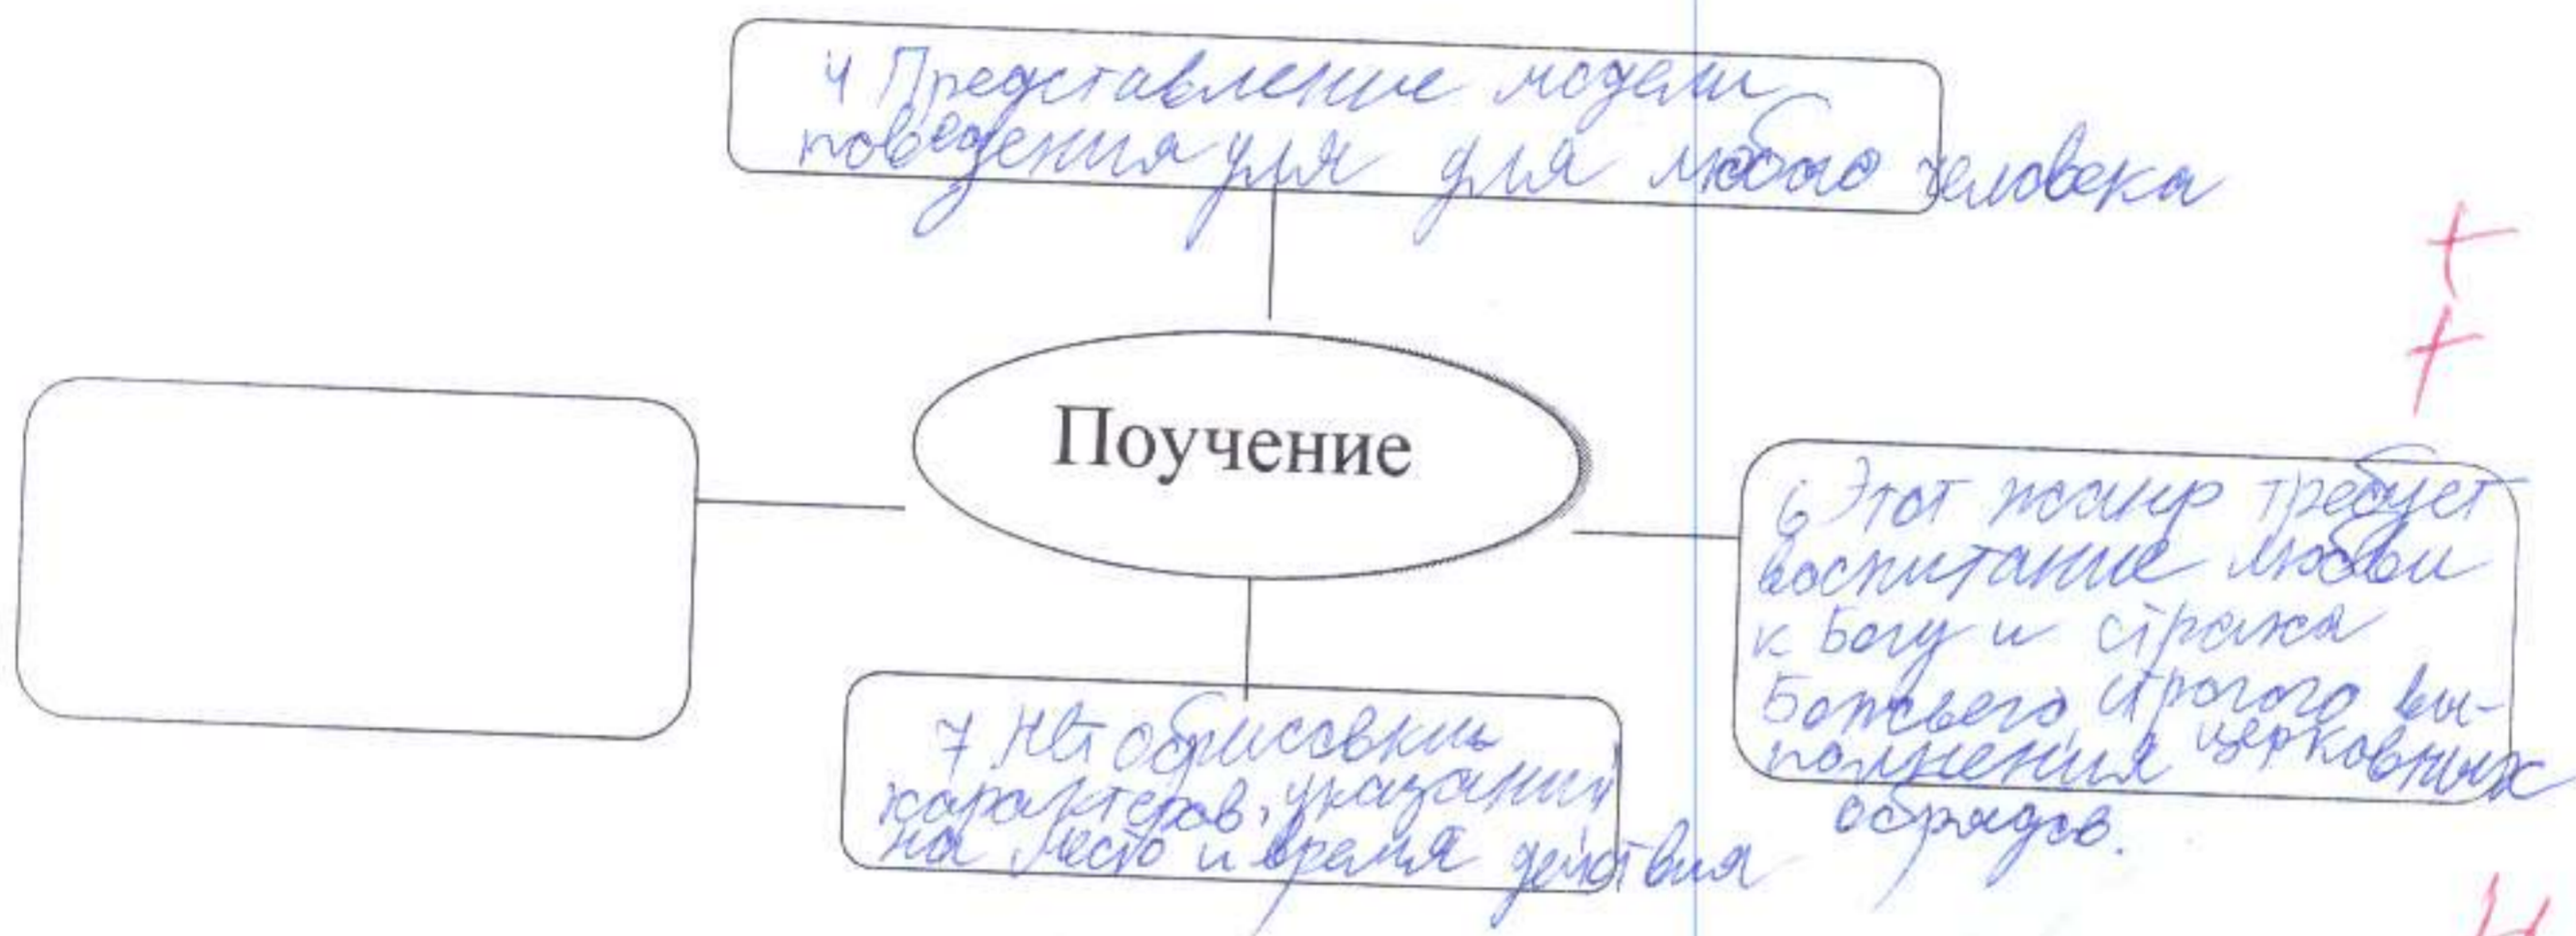 4 Представление модели
поведения для для любого человека
Поучение
6 Этот жанр требует
воспитание любви
к Богу и страха
Божьего, строгого вы-
полнения церковных
обрядов.
7 Нет обрисовки
характеров, указания
на место и время действия